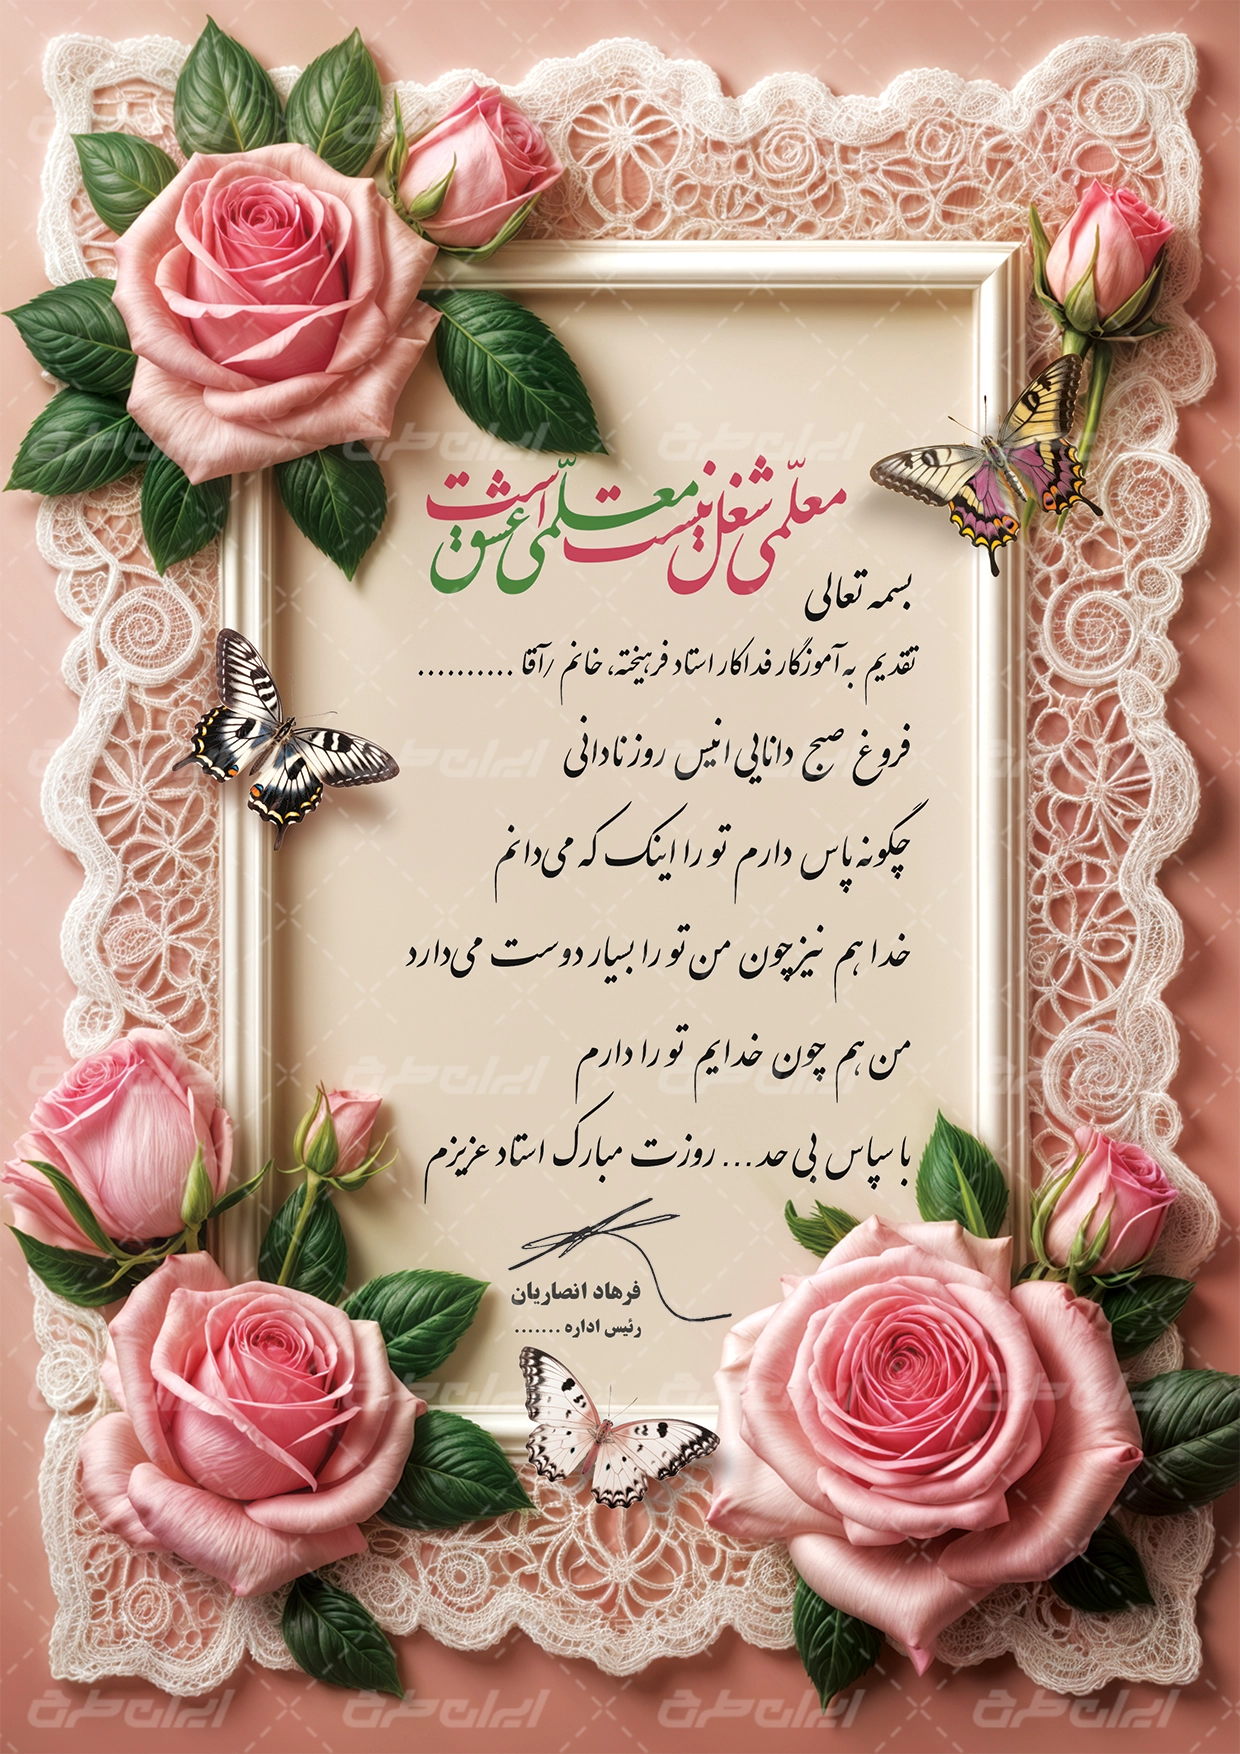 معلّمی شغل نیست معلّمی عشق است
بسمه تعالی
تقدیم به آموزگار فداکار استاد فرهیخته، خانم /آقا ..........
فروغ صبح دانایی انیس روز نادانی
چگونه پاس دارم تو را اینک که می‌دانم
خدا هم نیز چون من تو را بسیار دوست می‌دارد
من هم چون خدایم تو را دارم
با سپاس بی حد... روزت مبارک استاد عزیزم
فرهاد انصاریان
رئیس اداره .......
ایران طرح